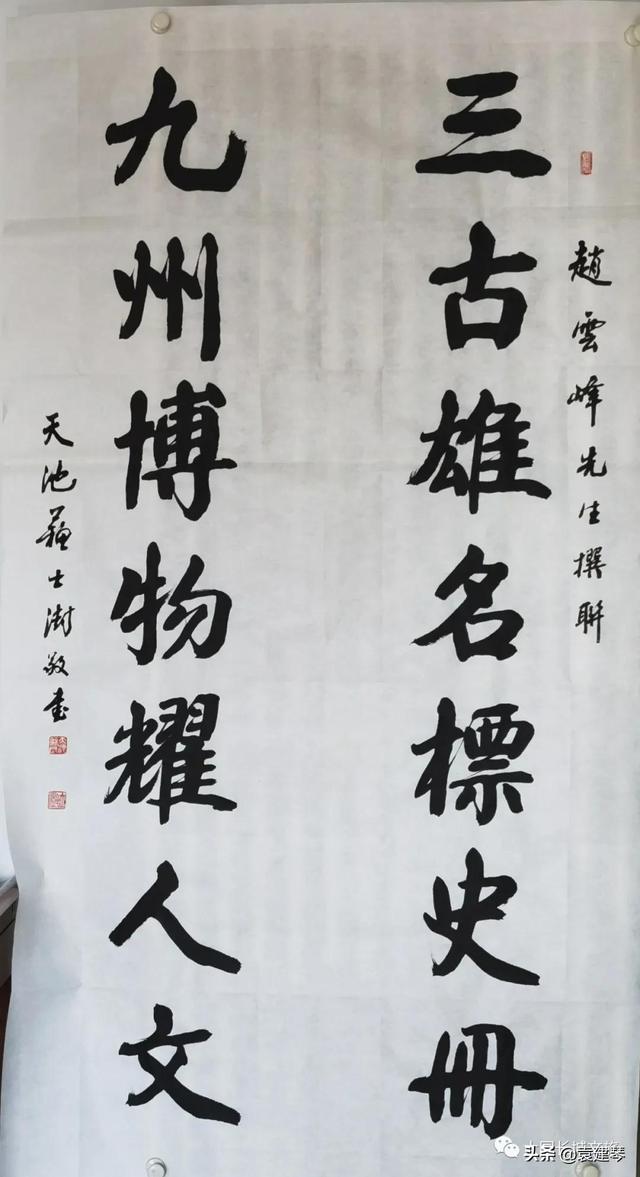 趙雲峰先生撰聯
三古雄名標史冊
九州博物耀人文
天池蘇士澍敬書
头条@袁建琴